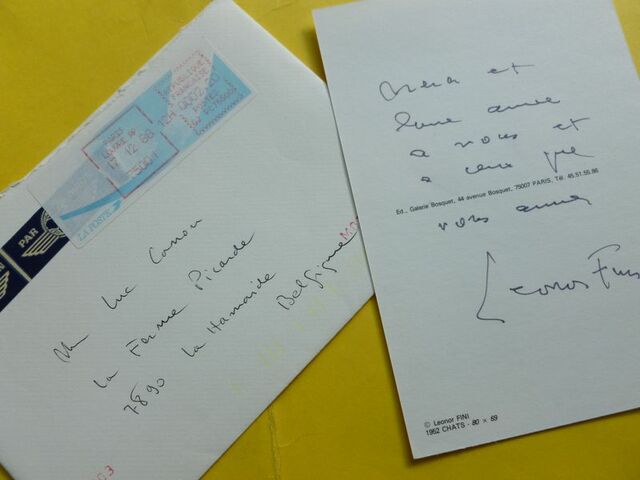 LA POSTE
17 12 88
75001
PAR
M Luc Canon
La Ferme Picarde
7890 La Hamaide
Belgique
Merci et
bonne année
à vous et
à ceux que
vous aimez
Ed., Galerie Bosquet, 44 avenue Bosquet, 75007 PARIS. Tél. 45.51.55.86
Leonor Fini
© Leonor FINI
1952 CHATS - 80 × 59